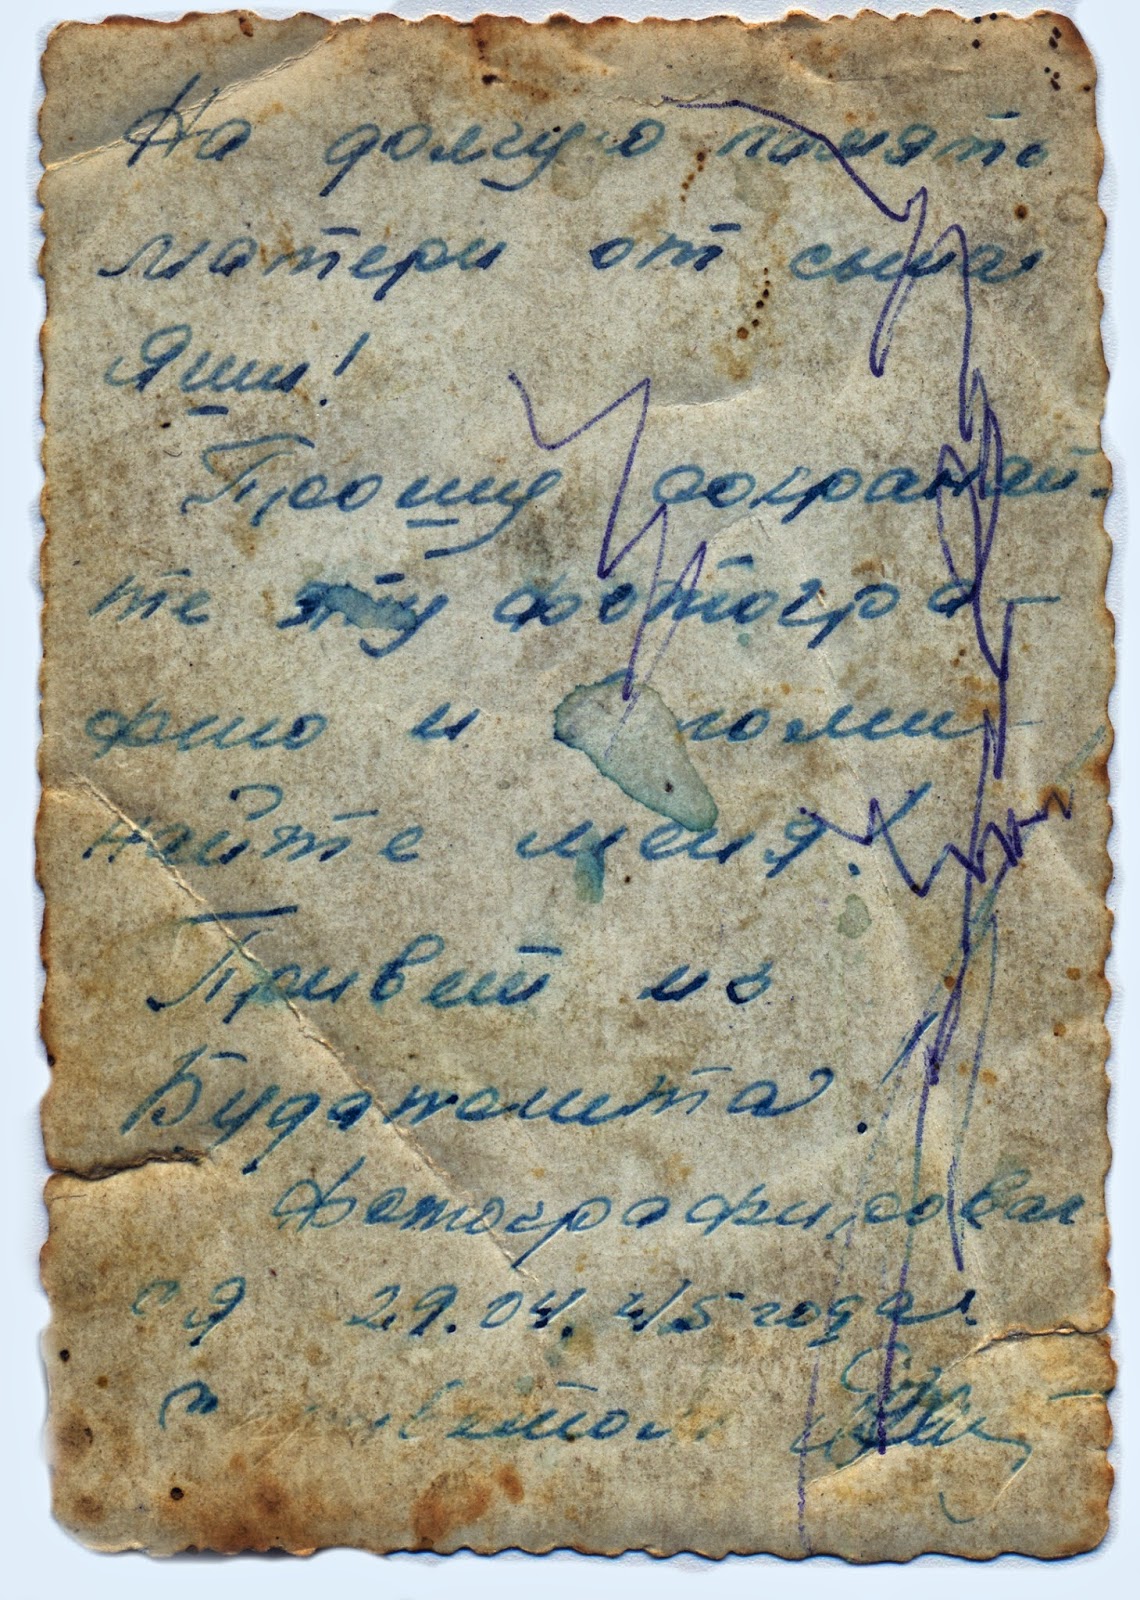 На долгую память
матери от сына
Яши!
Прошу сохраняй-
те эту фотогра-
фию и поми-
найте меня!
Привет из
Будапешта!
Фотографировал
ся 29.04.45 года.
С приветом